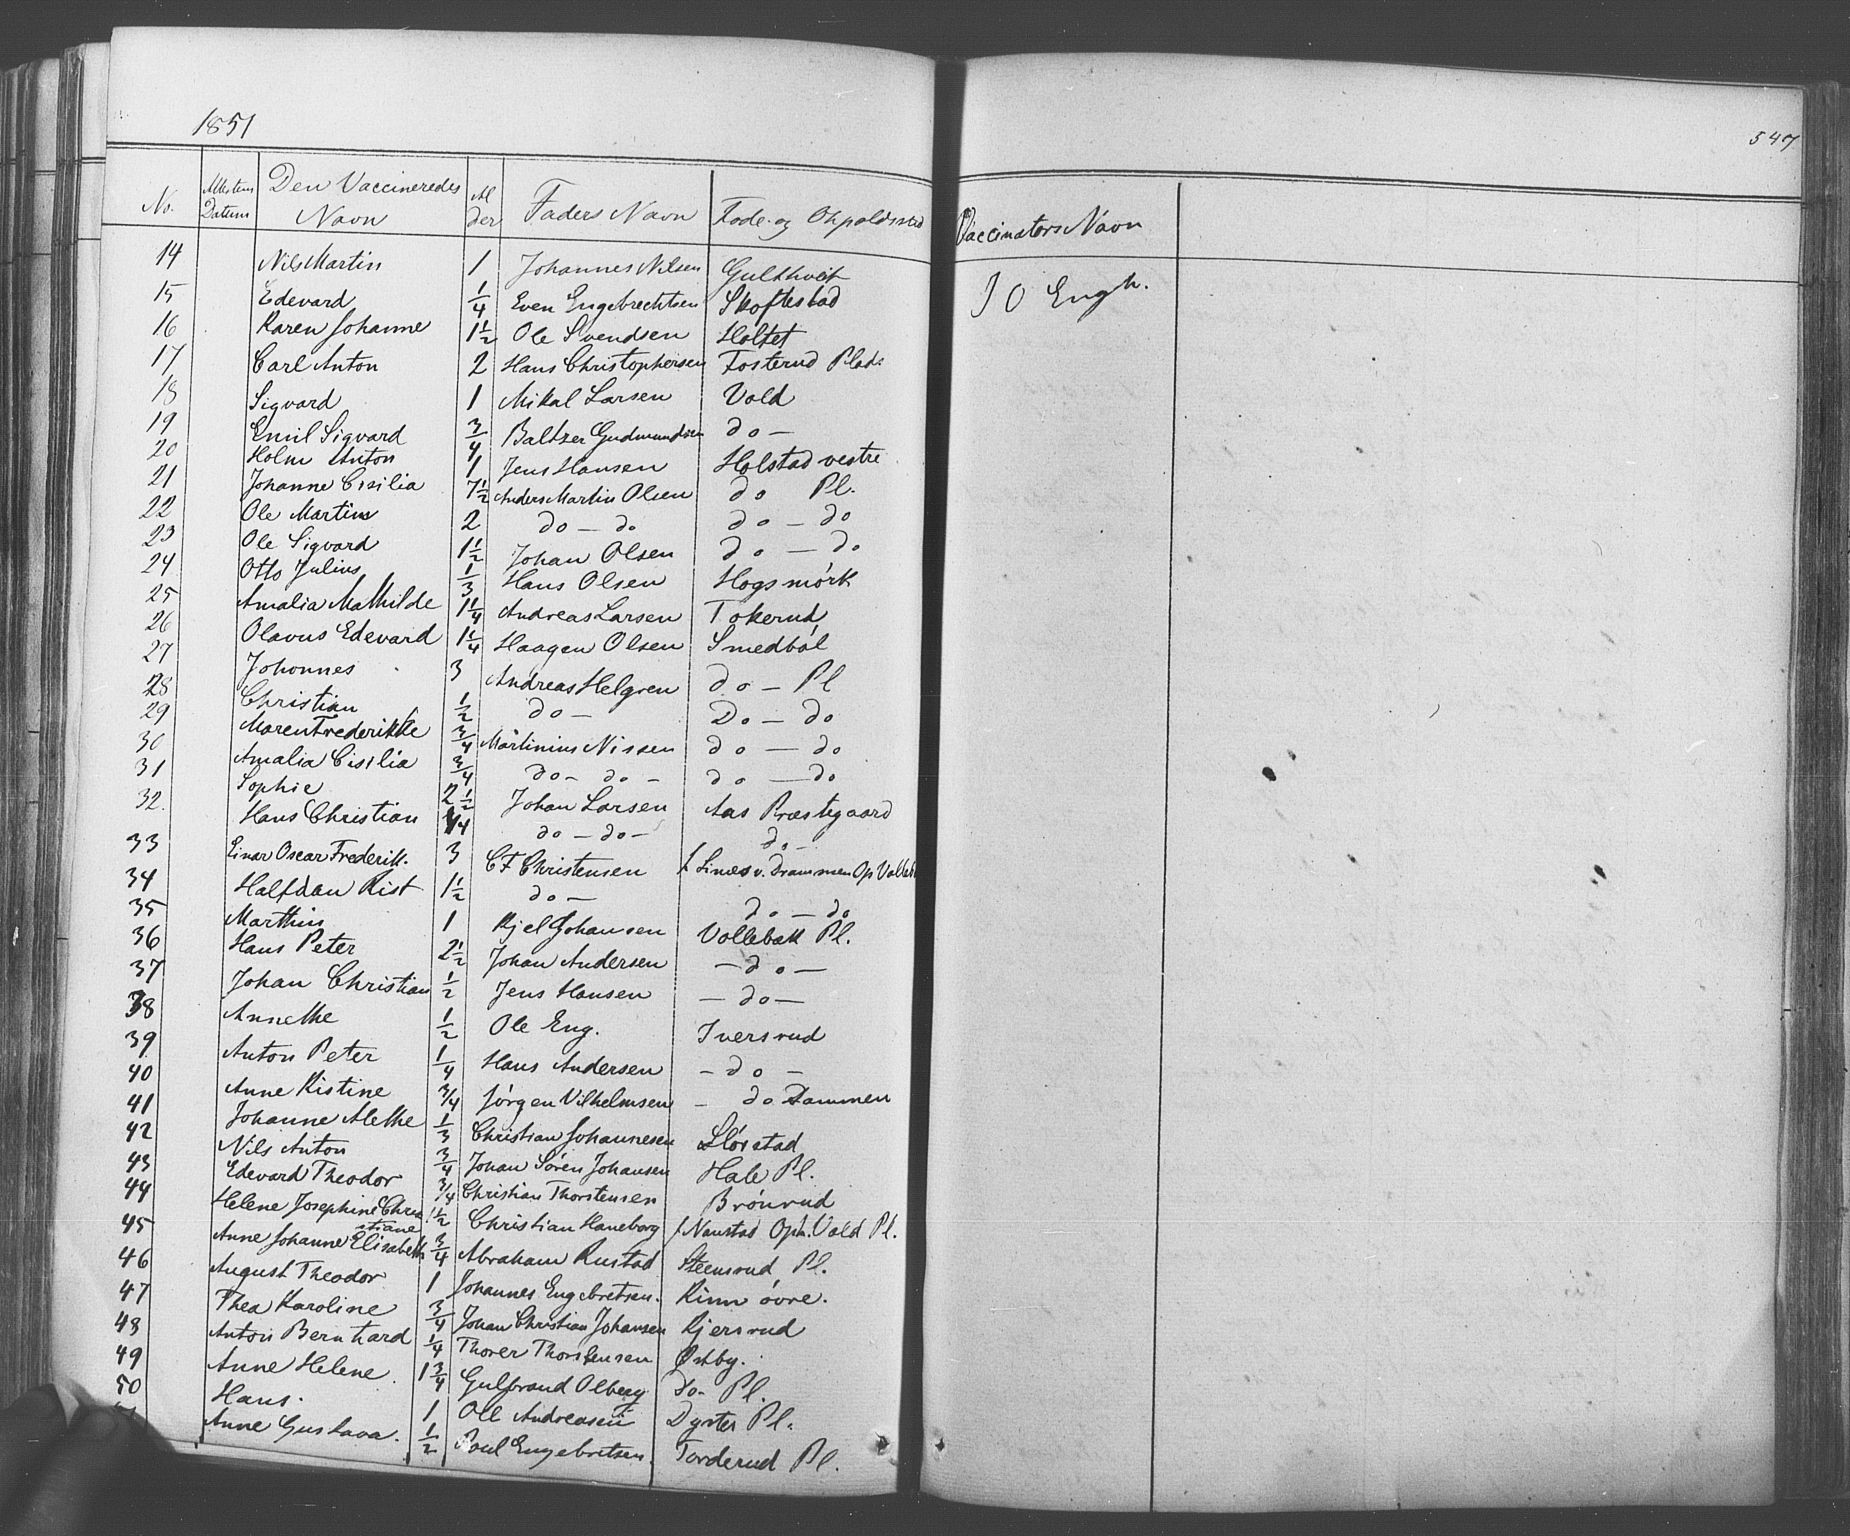 1851
547
No. Attestens Datum Den Vaccineredes Navn Alder Faders Navn Føde- og Opholdssted Vaccinators Navn
14 Nils Martin 1 Johannes Nilsen Gulthveit J O Engh.
15 Edevard 1/4 Even Engebrechtsen Skoftestad
16 Karen Johanne 1 1/2 Ole Svendsen Holtet
17 Carl Anton 2 Hans Christophersen Fosterud Plads
18 Sigvard 1 Mikal Larsen Vold
19 Emil Sigvard 3/4 Baltzer Gudmundsen do —
20 Holm Anton 1 Jens Hansen Holstad vestre
21 Johanne Cisilia 7 1/2 Anders Martin Olsen do Pl.
22 Ole Martin 2 do — do do — do
23 Ole Sigvard 1 1/2 Johan Olsen do — do
24 Otto Julius 1/3 Hans Olsen Hogsmørk
25 Amalia Mathilde 1 1/4 Andreas Larsen Tokerud
26 Olavus Edevard 1 1/4 Haagen Olsen Smedbøl
27 Johonnes 3 Andreas Helgren do — Pl
28 Christian 1/2 do — Do — do
29 Maren Frederikke 3/4 Martinius Nissen do — do
30 Amalia Cisilia 3/4 do — do — do — do
31 Sophie 2 1/2 Johan Larsen Aas Præstegaard
32. Hans Christian 1/4 do — do — do —
33 Einar Oscar Frederik. 3 C F Christensen f Linæs v. Drammen Op Vollebk
34 Halfdan Kist 1 1/2 do — do — do
35 Marthin 1 Kjel Johansen Vollebæk Pl.
36 Hans Peter 2 1/2 Johan Andersen — do —
37 Johan Christian 1/2 Jens Hansen — do —
38 Annethe 1/2 Ole Eng. Iversrud
39 Anton Peter 1/4 Hans Andersen — do —
40 Anne Kistine 3/4 Jørgen Vilhelmsen — do Dammen
41 Johanne Alethe 1/3 Christian Johannesen Slørstad
42 Nils Anton 3/4 Johan Søren Johansen Hale Pl.
43 Edevard Theodor 3/4 Christian Thorstensen Brønrud
44 Helene Josephine Christiane 1 1/2 Christian Haneborg f Naustad Oph. Vold Pl.
45 Anne Johanne Elisabeth 3/4 Abraham Rustad Steensrud Pl.
46 August Theodor 1 Johannes Engebretsen. Rinn øvre.
47 Thea Karoline 3/4 Johan Christian Johansen Kjersrud
48 Anton Bernhard 1/4 Thorer Thorstensen Østby.
49 Anne Helene. 1 3/4 Gulbrand Olberg do — Pl.
50 Hans. 1 Ole Andreasen Dyster Pl.
Anne Gustava. 1/2 Poul Engebretsen. Torderud Pl.